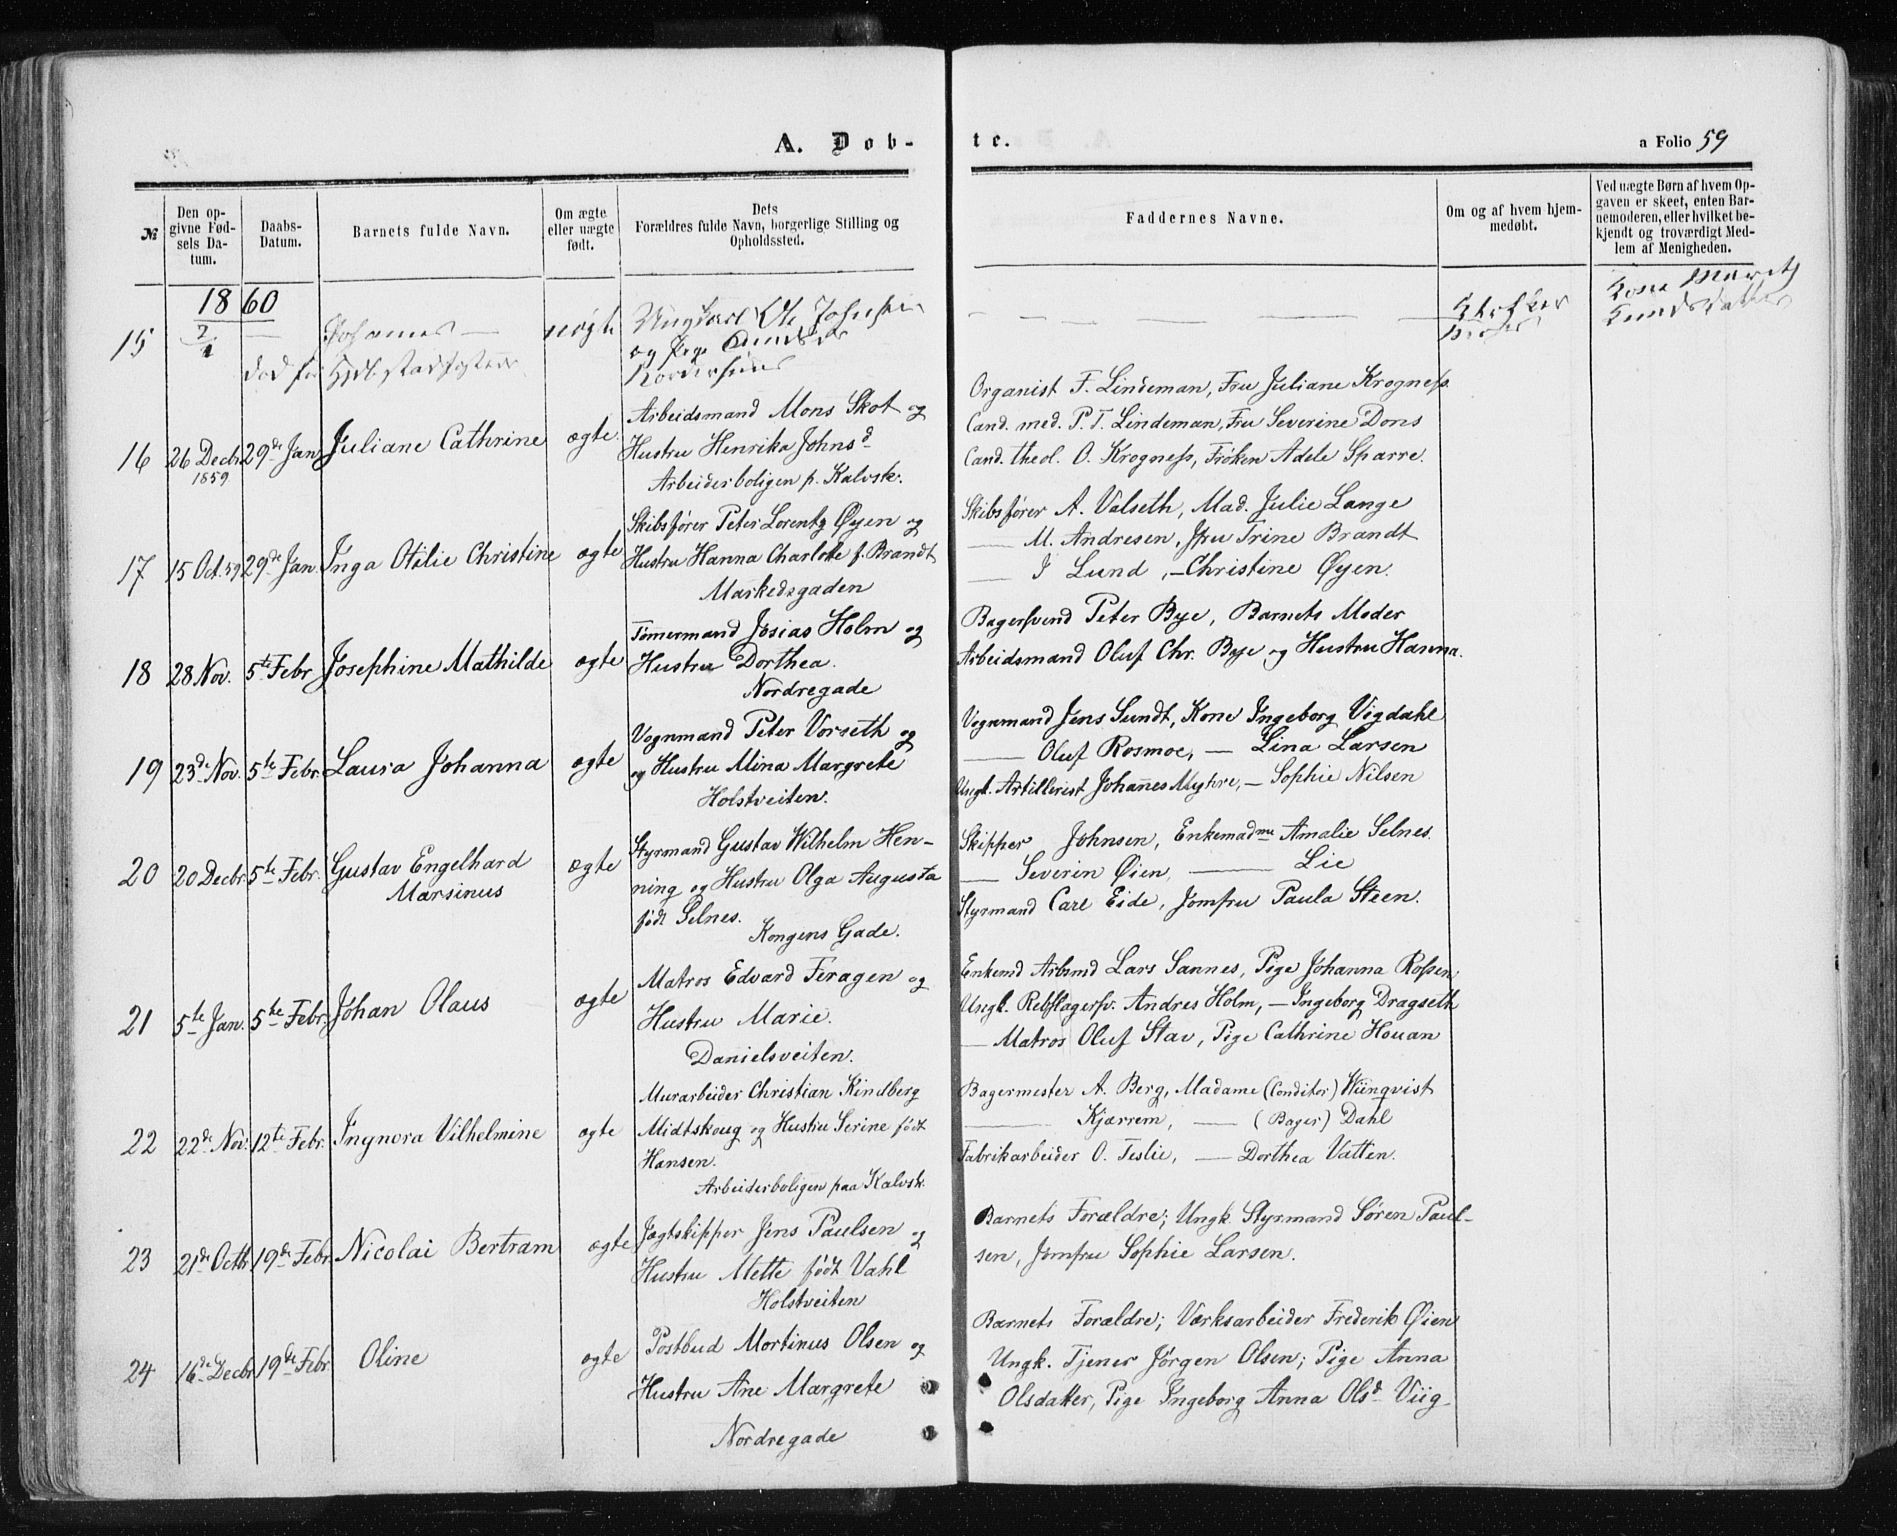 A. Døb-
te.
a Folio 59
№
Den op-
givne Fød-
sels Da-
tum.
Daabs-
Datum.
Barnets fulde Navn.
Om ægte
eller uægte
født.
Dets
Forældres fulde Navn, borgerlige Stilling og
Opholdssted.
Faddernes Navne.
Om og af hvem hjem-
medøbt.
Ved uægte Børn af hvem Op-
gaven er skeet, enten Bar-
nemoderen, eller hvilket be-
kjendt og troværdigt Med-
lem af Menigheden.
1860
15
uægte
Ungkarl Ole Johnsen
og Pige
Kone Marith
16
26 Decbr
1859
29de Jan
Juliane Cathrine
ægte
Arbeidsmand Mons Skot og
Hustru Henrika Johnsd
Arbeiderboligen p. Kalvsk.
Organist F. Lindeman, Fru Juliane Krogness
Cand. med. P. T. Lindeman, Fru Severine Dons
Cand. theol. O. Krogness, Frøken Adele Sparre.
17
15 Oct. 59
29de Jan.
Inga Otilie Christine
ægte
Skibsfører Peter Lorentz Øyen og
Hustru Hanna Charlotte f. Brandt
Markedsgaden
Skibsfører A. Valseth, Mad. Julie Lange
— M. Andresen, Jfru Trine Brandt
— J Lund, — Christine Øyen.
18
28 Nov.
5te Febr
Josephine Mathilde
ægte
Tømmermand Josias Holm og
Hustru Dorthea.
Nordregade
Bagersvend Peter Bye, Barnets Moder
Arbeidsmand Oluf Chr. Bye og Hustru Hanna.
19
23de Nov.
5te Febr.
Laura Johanna
ægte
Vognmand Peter Vorseth og
og Hustru Mina Margrete
Holstveiten.
Vognmand Jens Sundt, Kone Ingeborg Vigdahl
— Oluf Rosmoe, — Lina Larsen
Ungk. Artillerist Johannes Myhre, — Sophie Nilsen
20
20 Decbr
5te Febr.
Gustav Engelhard
Marsinus
ægte
Styrmand Gustav Wilhelm Hen-
ning og Hustru Olga Augusta
født Selnes.
Kongens Gade.
Skipper Johnsen, Enkemadme Amalie Selnes.
— Severin Øien, — Lie
Styrmand Carl Eide, Jomfru Paula Steen.
21
5te Jan.
5te Febr.
Johan Olaus
ægte
Matros Edvard Feragen og
Hustru Marie.
Danielsveiten.
Enkemd Arbmd Lars Sannes, Pige Johanna Rossen
Ungk. Rebslagersv. Andres Holm, — Ingeborg Dragseth
— Matros Oluf Stav, Pige Cathrine Houan
22
22de Nov.
12te Febr.
Ingnora Vilhelmine
ægte
Murarbeider Christian Kindberg
Midtskoug og Hustru Serine født
Hansen.
Arbeiderboligen paa Kalvsk.
Bagermester A. Berg, Madame (Conditor) Wiinqvist
— Kjærrem, — (Bager) Dahl
Fabrikarbeider O. Teslie, — Dorthea Vatten.
23
21de Octbr
19de Febr.
Nicolai Bertram
ægte
Jægtskipper Jens Paulsen og
Hustru Mette født Vahl
Holstveiten
Barnets Forældre; Ungk. Styrmand Søren Paul-
sen, Jomfru Sophie Larsen.
24
16de Decbr
19de Febr
Oline
ægte
Postbud Mortinus Olsen og
Hustru Ane Margrete
Nordregade
Barnets Forældre; Værksarbeider Frederik Øien
Ungk. Tjener Jørgen Olsen; Pige Anna
Olsdatter, Pige Ingeborg Anna Olsd Viig.